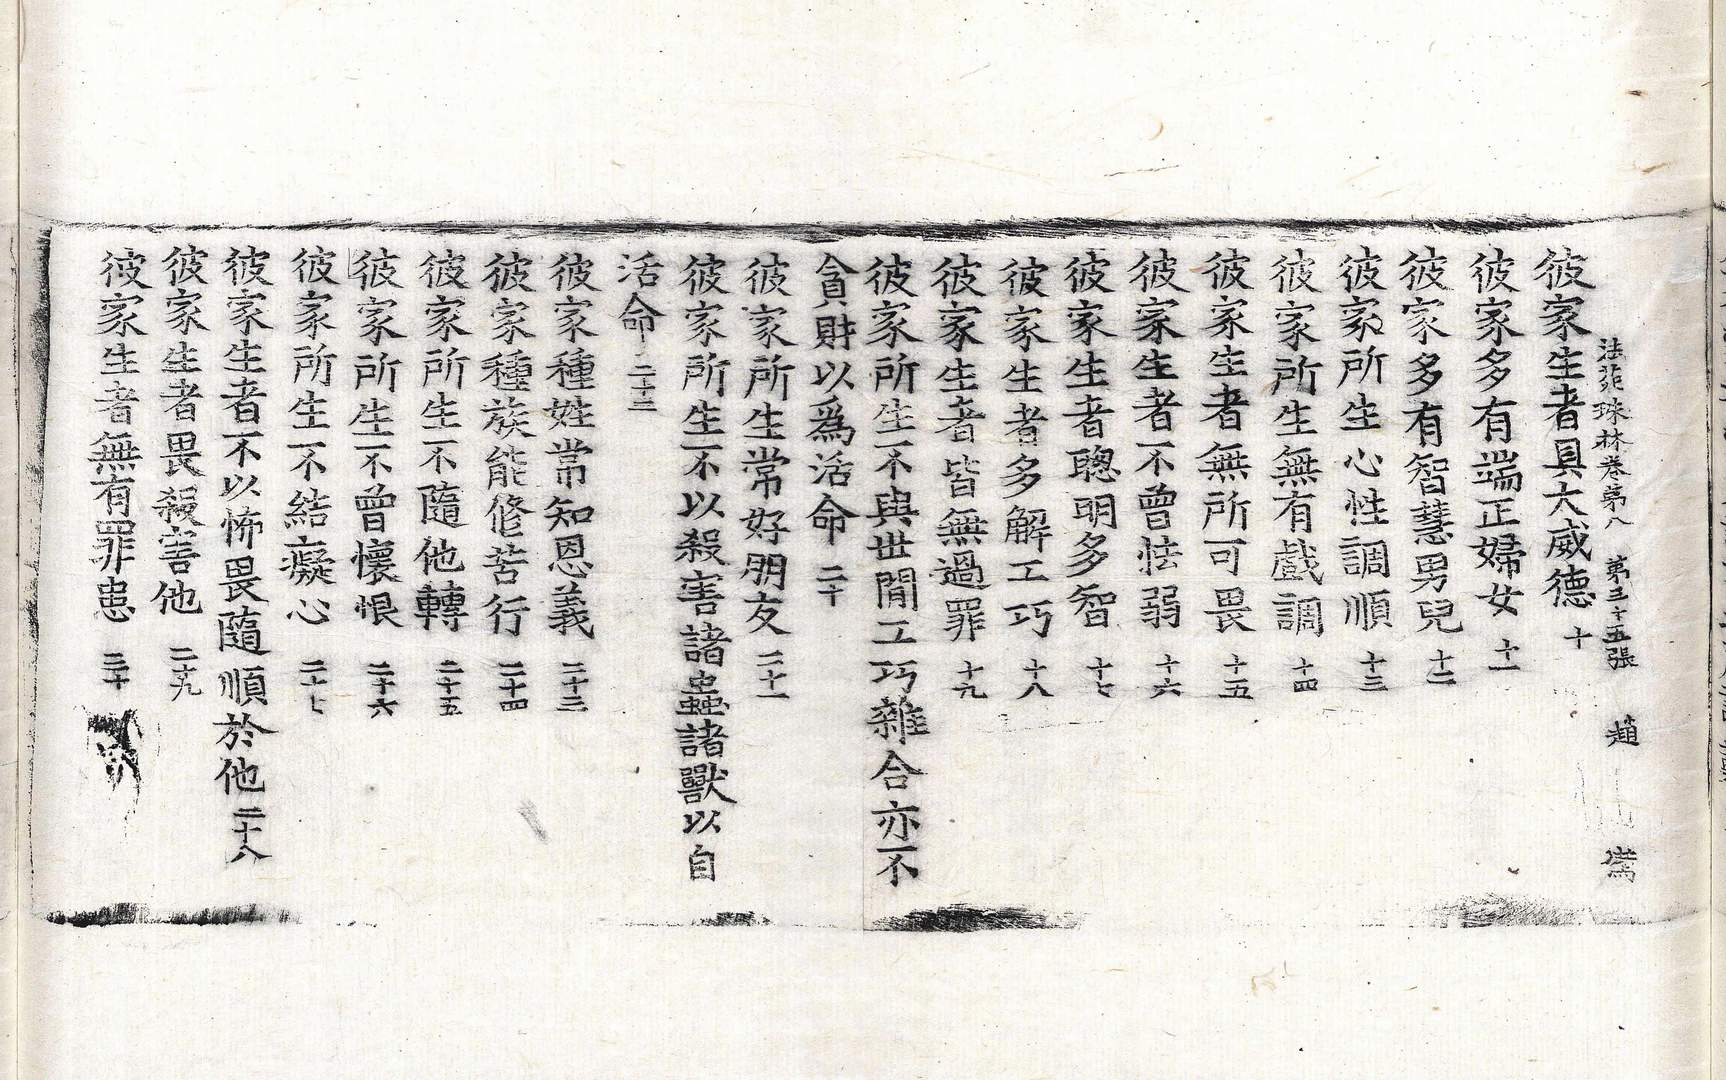 法苑珠林卷第八 第三十五張 趙 
彼家生者具大威德 十
彼家多有端正婦女 十一
彼家多有智慧男兒 十二
彼家所生心性調順 十三
彼家所生無有戲調 十四
彼家生者無所可畏 十五
彼家生者不曾怯弱 十六
彼家生者聰明多智 十七
彼家生者多解工巧 十八
彼家生者皆無過罪 十九
彼家所生不與世閒工巧雜合亦不
貪財以爲活命 二十
彼家所生常好朋友 二十一
彼家所生不以殺害諸蟲諸獸以自
活命 二十二
彼家種姓常知恩義 二十三
彼家種族能修苦行 二十四
彼家所生不隨他轉 二十五
彼家所生不曾懷恨 二十六
彼家所生不結癡心 二十七
彼家生者不以怖畏隨順於他 二十八
彼家生者畏殺害他 二十九
彼家生者無有罪患 三十